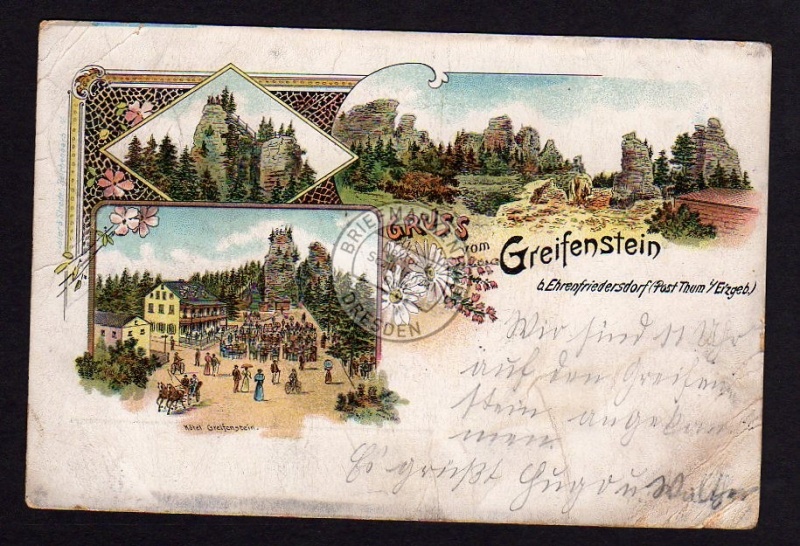 Gruss
vom
Greifenstein
b. Ehrenfriedersdorf (Post Thum i/Erzgeb.)
Hôtel Greifenstein.
DRESDEN
Wir sind 11 Uhr
auf den Greifen
stein angekom
men.
Es grüßt Hugo u Walther